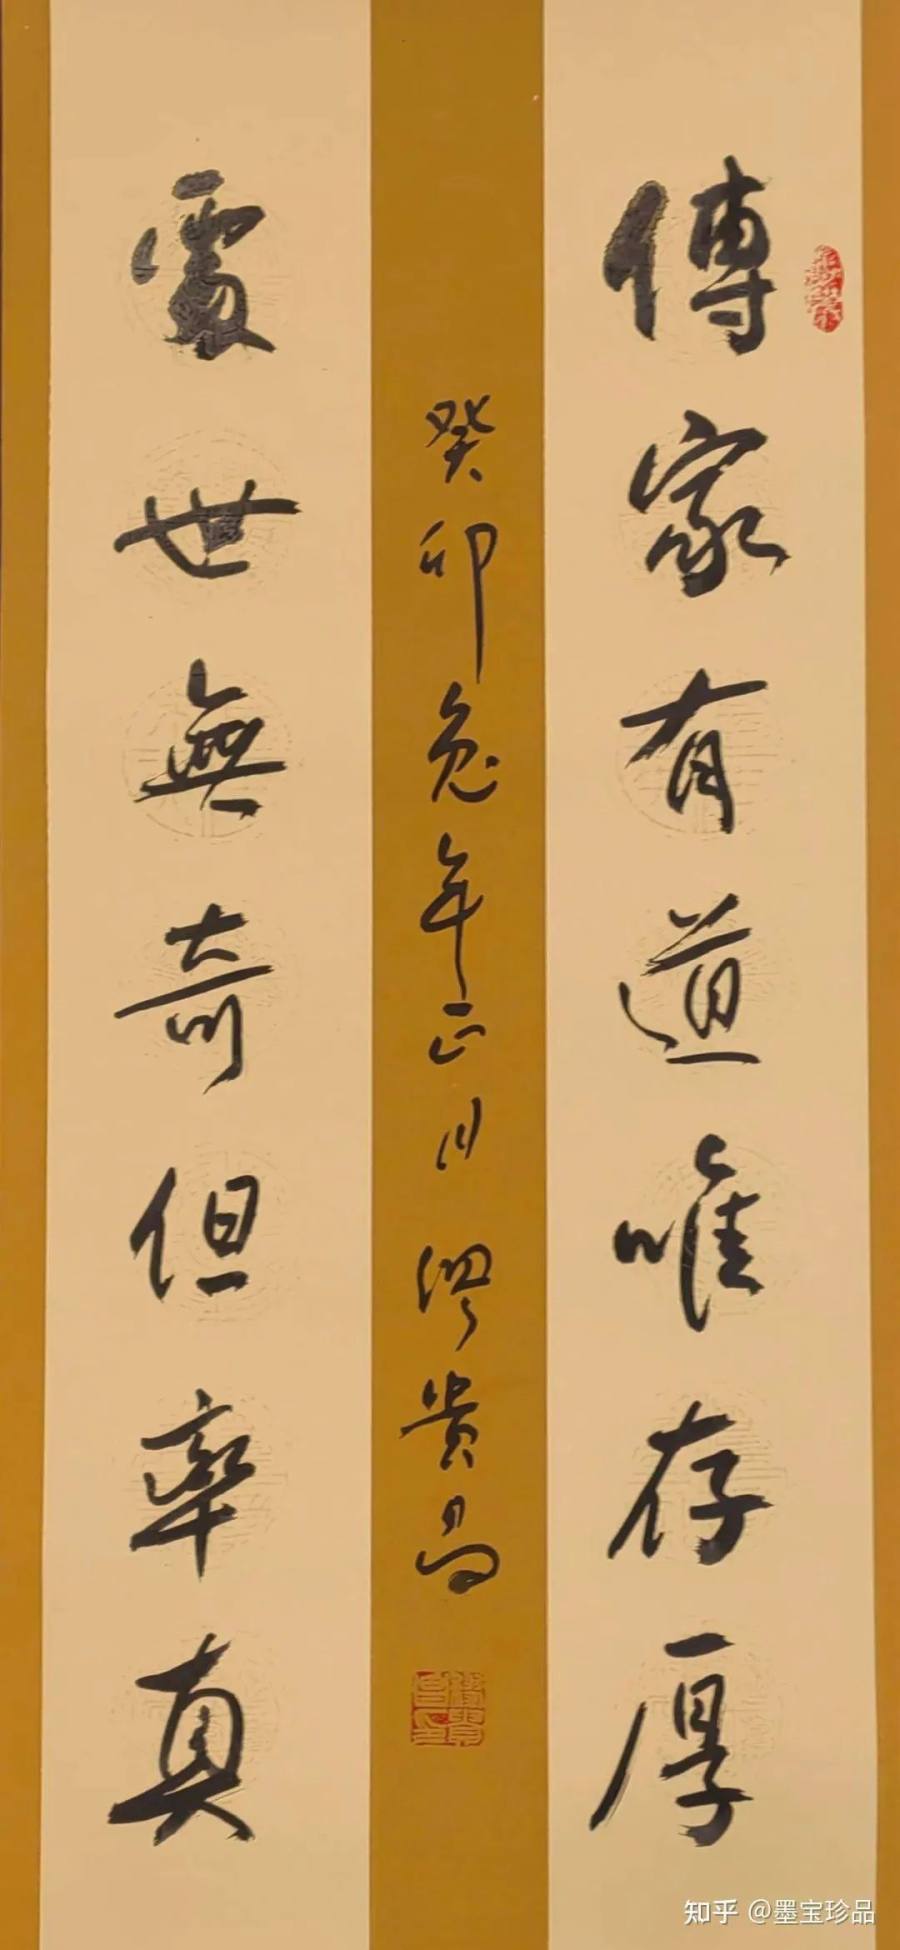 傳家有道唯存厚
處世無奇但率真
癸卯兔年正月繆貴昌
知乎 @墨宝珍品